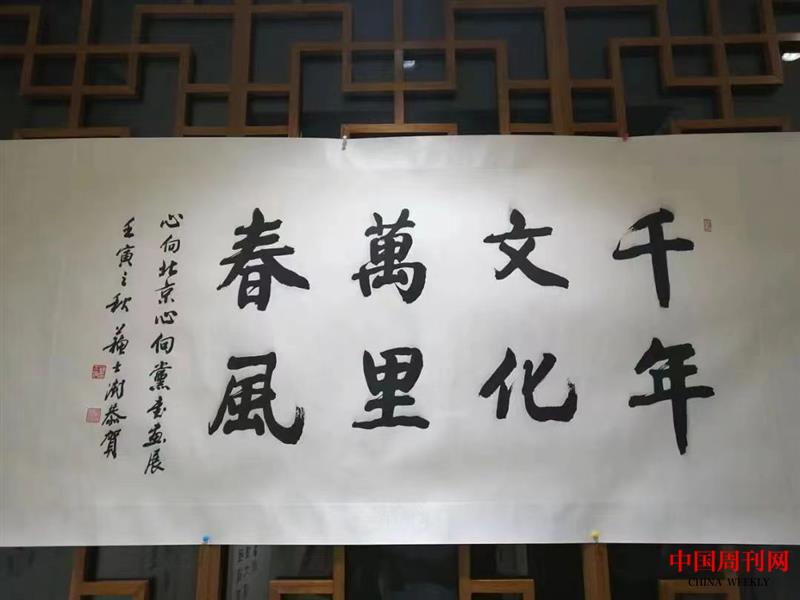 千年
文化
萬里
春風
心向北京心向黨書畫展
壬寅之秋蘇士澍恭賀
中国周刊网
CHINA WEEKLY